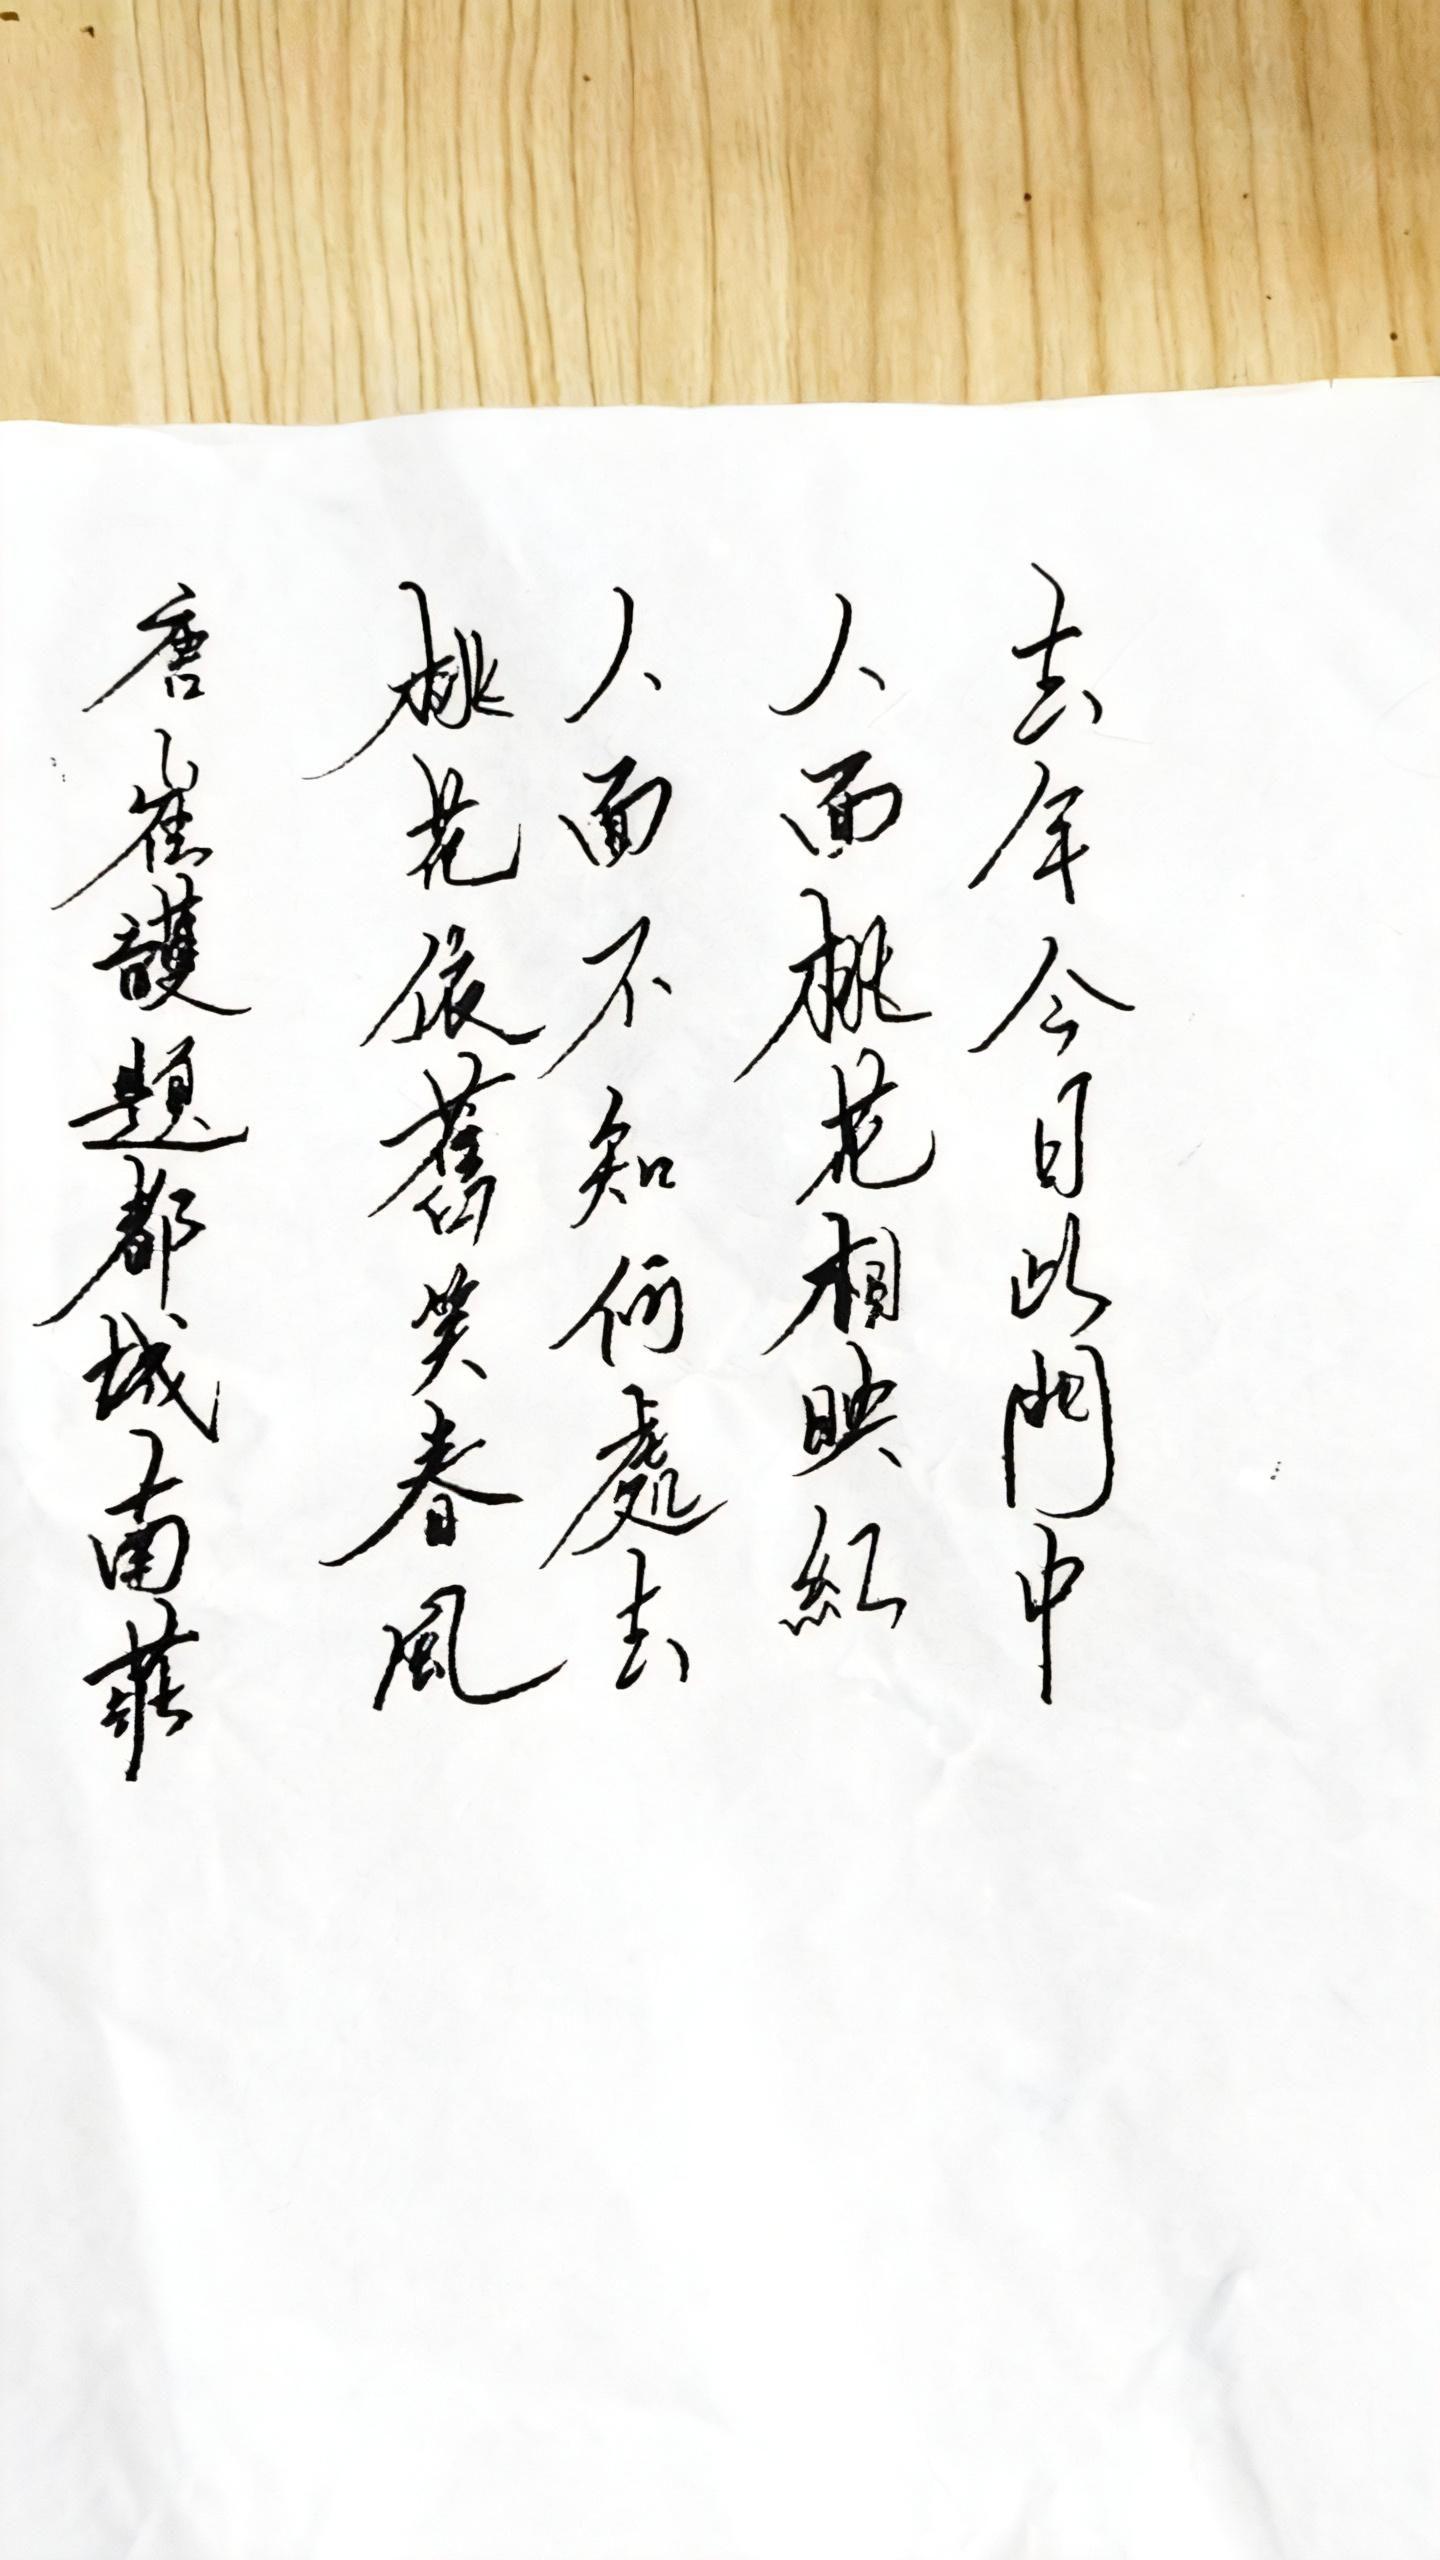 去年今日此門中
人面桃花相映紅
人面不知何處去
桃花依舊笑春風
唐崔護題都城南莊